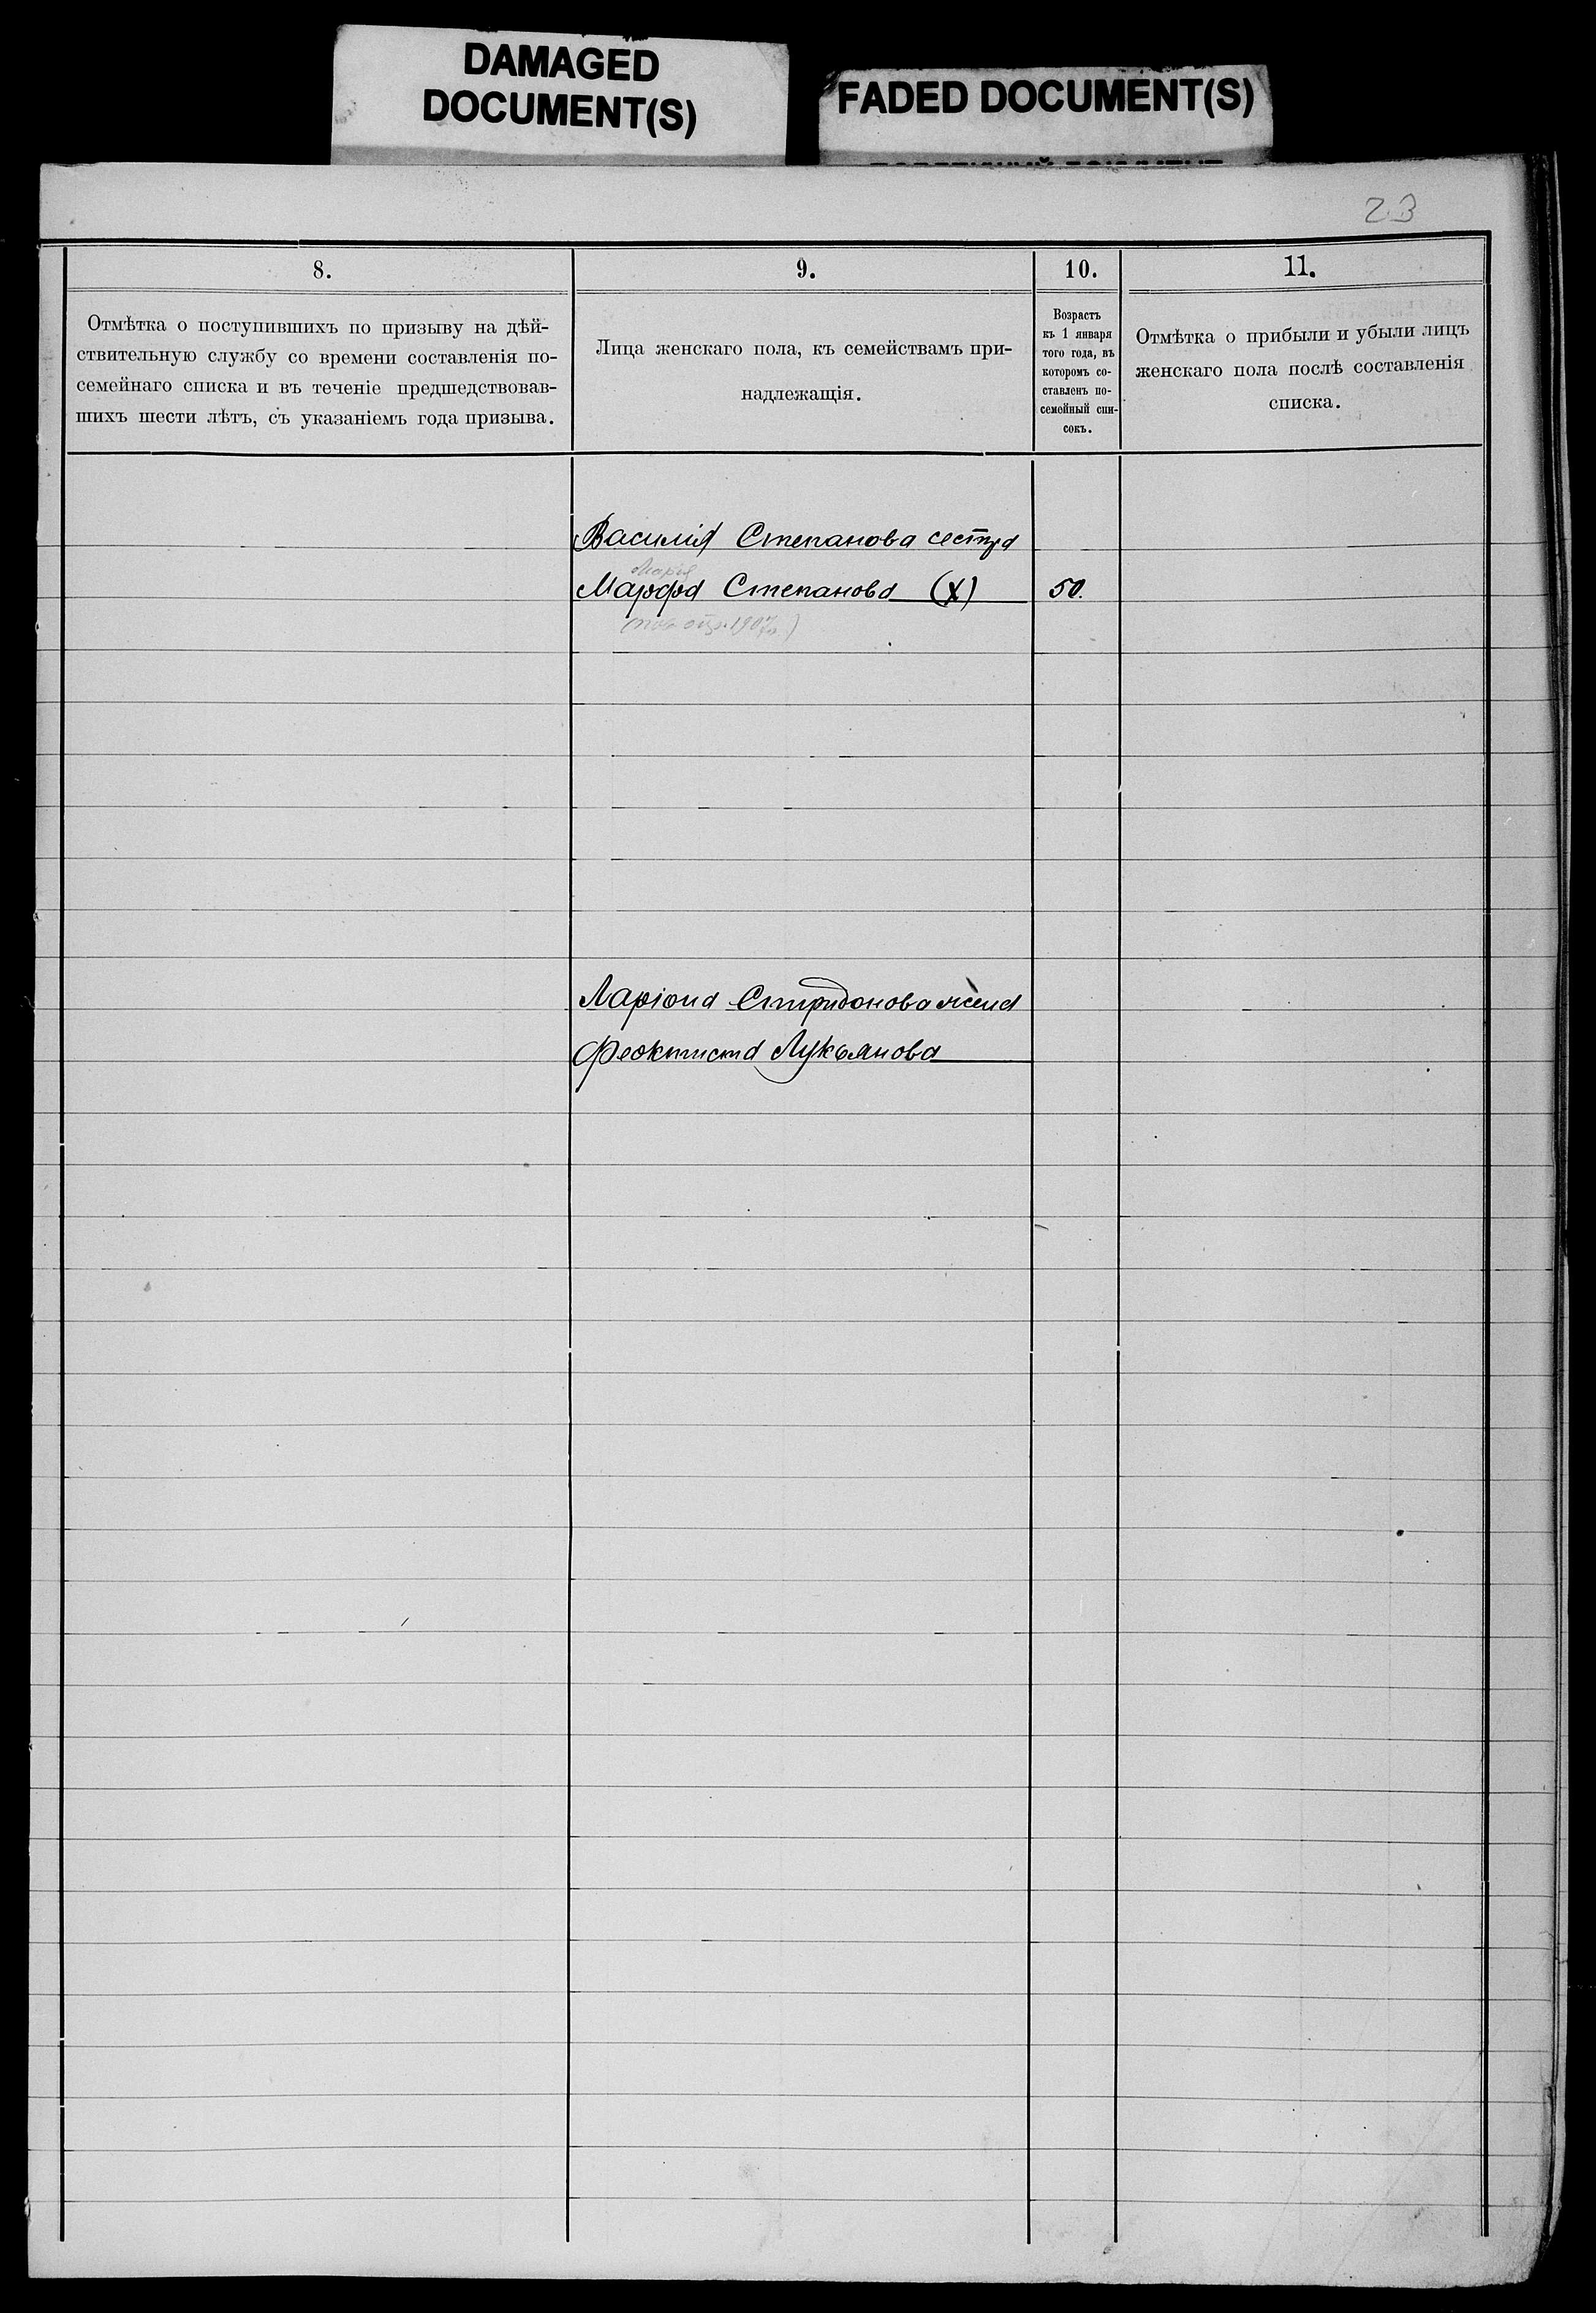 DAMAGED
DOCUMENT(S)
FADED DOCUMENT(S)
23
8.
Отмѣтка о поступившихъ по призыву на дѣй-
ствительную службу со времени составленія по-
семейнаго списка и въ теченіе предшедствовав-
шихъ шести лѣтъ, съ указаніемъ года призыва.
9.
Лица женскаго пола, къ семействамъ при-
надлежащія.
10.
Возрастъ
къ 1 января
того года, въ
которомъ со-
ставленъ по-
семейный спи-
сокъ.
11.
Отмѣтка о прибыли и убыли лицъ
женскаго пола послѣ составленія
списка.
Василія Степанова сестра
Марья
Марфа Степанова (X) 50.
1907
Ларіона Спиридонова жена
Феоктиста Лукьянова